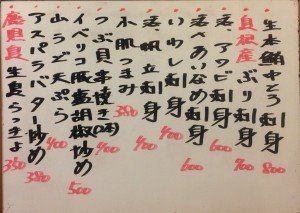 生本鮪中とろ刺身 800
ぶり刺身 700
活アワビ刺身
活〆あいなめ刺身 600
いわし刺身 400
活帆立刺身 400
小肌つまみ 380
つぶ貝串焼き(2本) 400
イベリコ豚塩胡椒炒め 500
山うど天ぷら 400
アスパラバター炒め 380
鹿児島 生島らっきょ 350